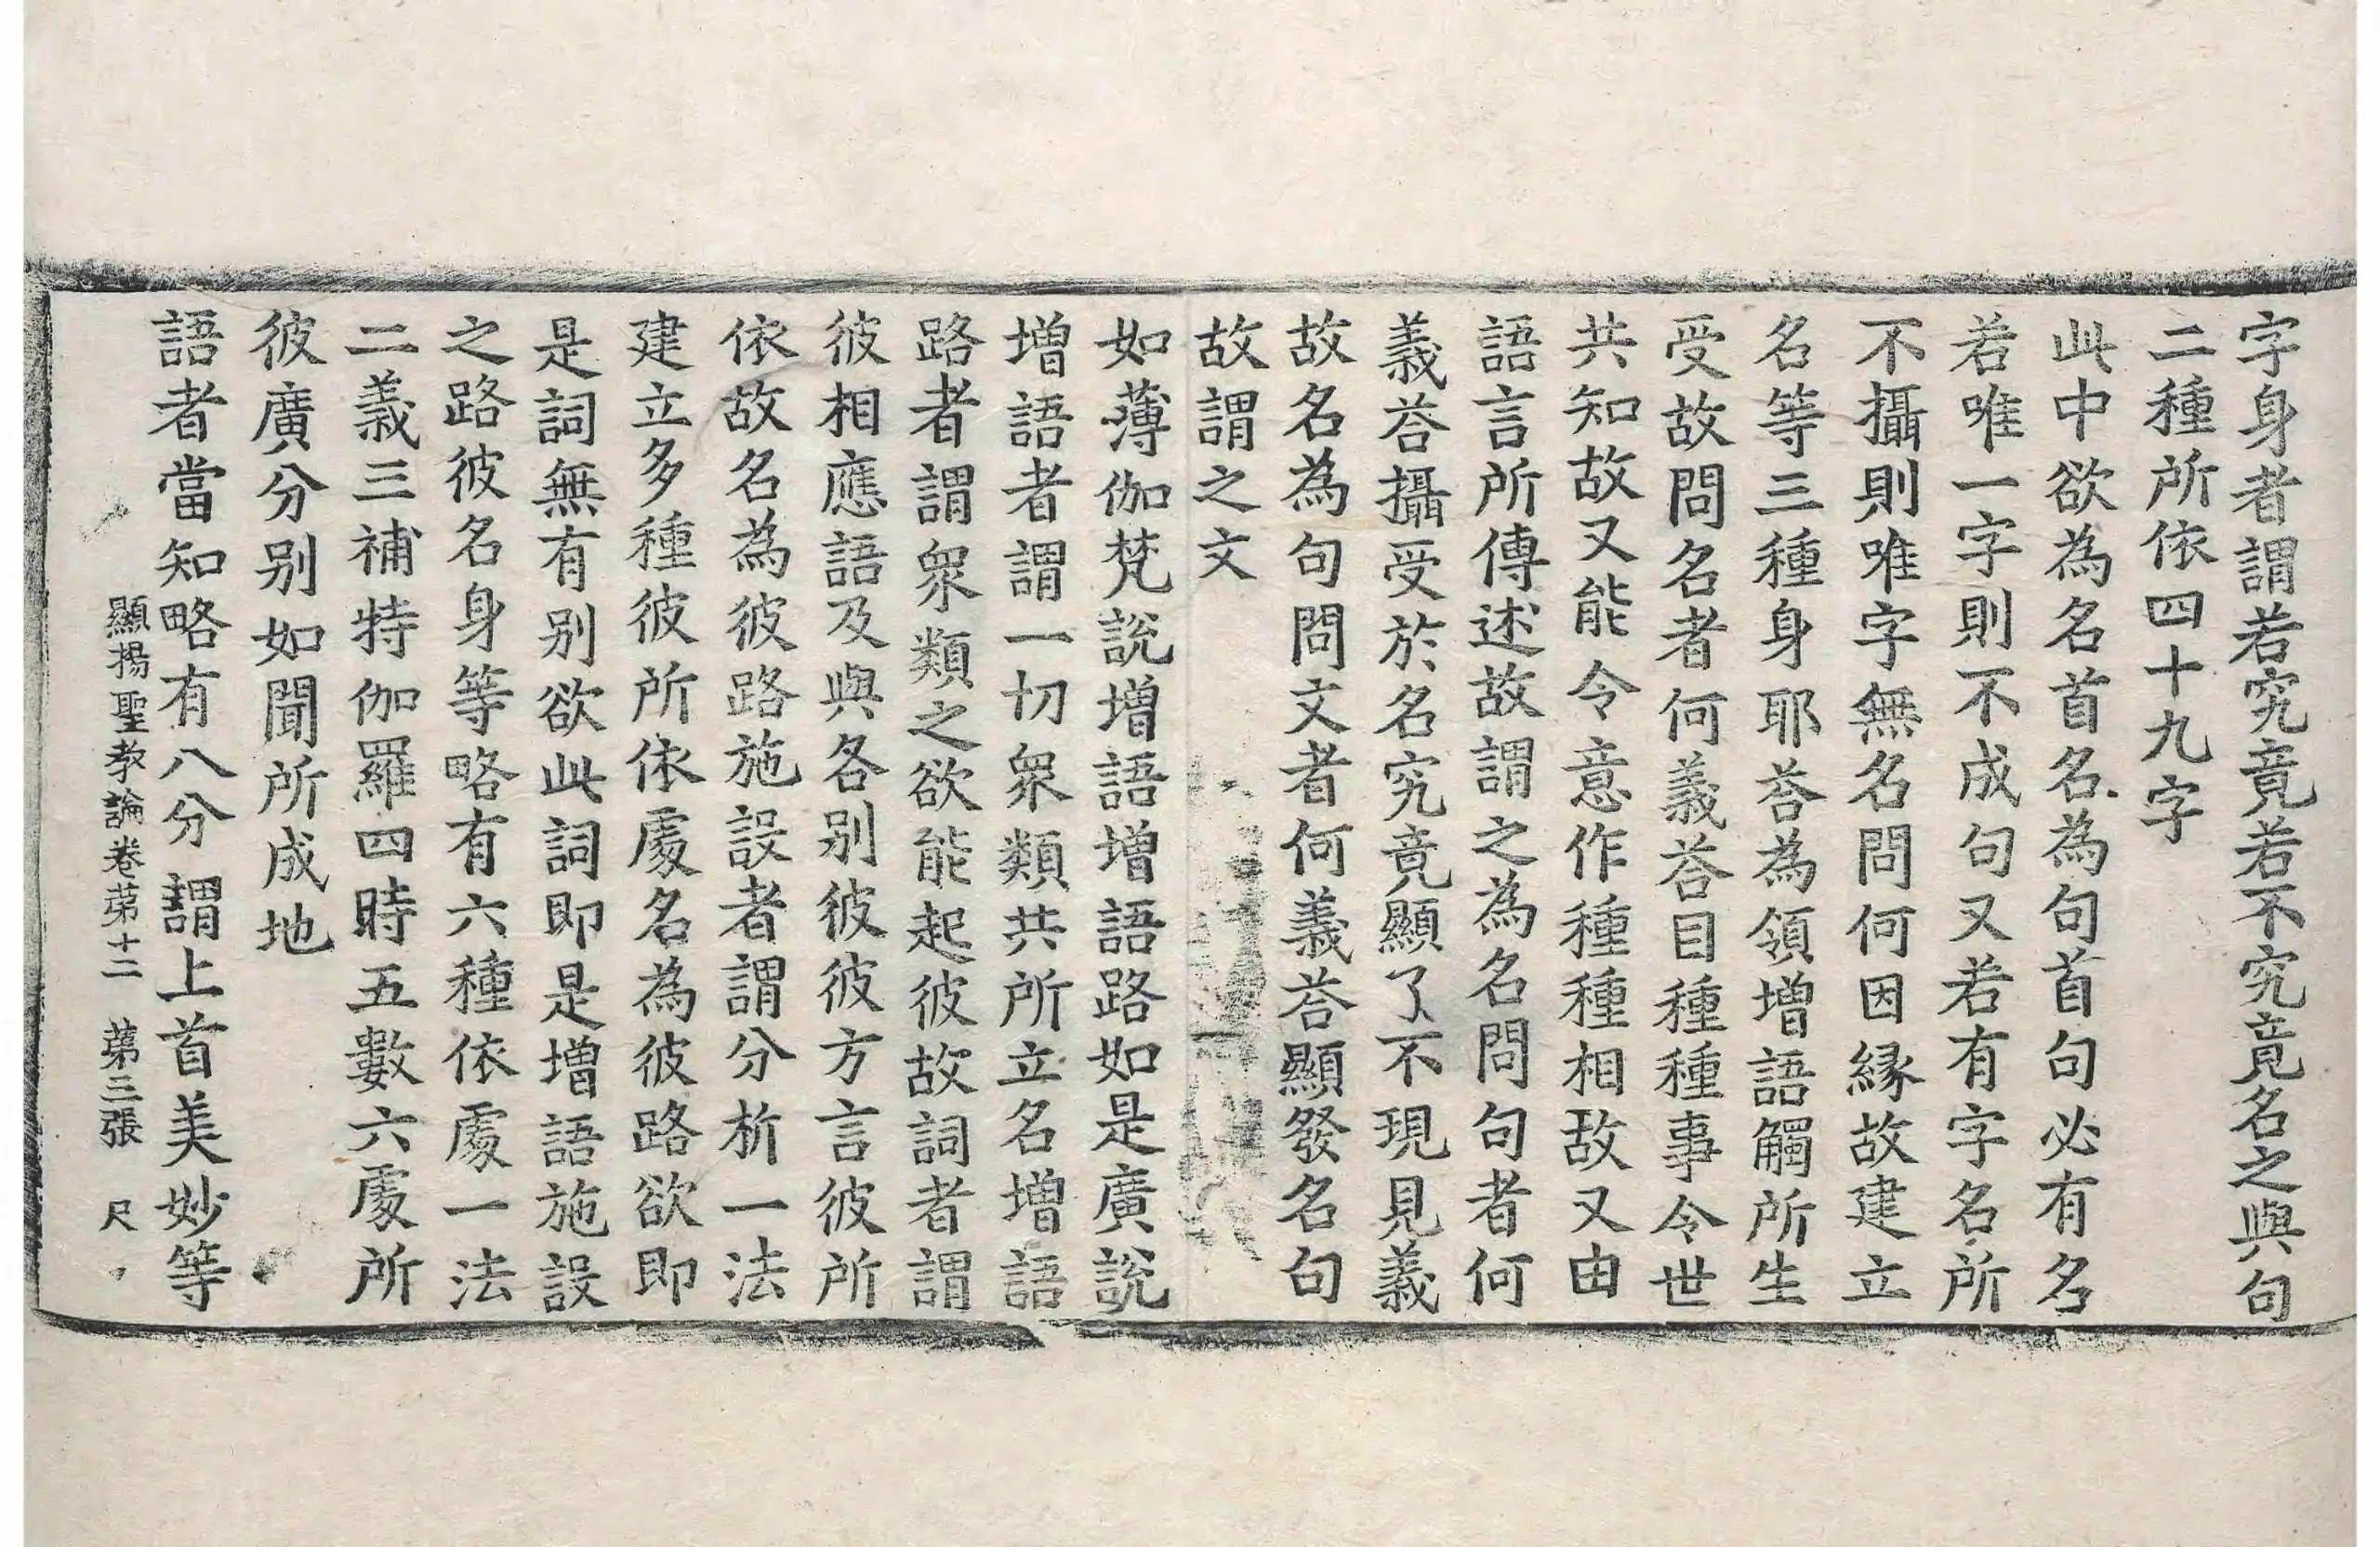 字身者謂若究竟若不究竟名之與句
二種所依四十九字
此中欲為名首名為句首句必有名
若唯一字則不成句又若有字名所
不攝則唯字無名問何因縁故建立
名等三種身耶荅為領增語觸所生
受故問名者何義荅目種種事令世
共知故又能令意作種種相故又由
語言所傳述故謂之為名問句者何
義荅攝受於名究竟顯了不現見義
故名為句問文者何義荅顯發名句
故謂之文
如薄伽梵說增語增語路如是廣說
增語者謂一切衆類共所立名增語
路者謂衆類之欲能起彼故詞者謂
彼相應語及與各别彼彼方言彼所
依故名為彼路施設者謂分析一法
建立多種彼所依處名為彼路欲即
是詞無有别欲此詞即是增語施設
之路彼名身等略有六種依處一法
二義三補特伽羅四時五數六處所
彼廣分别如聞所成地
語者當知略有八分謂上首美妙等
顯揚聖教論卷苐十二 苐三張 尺